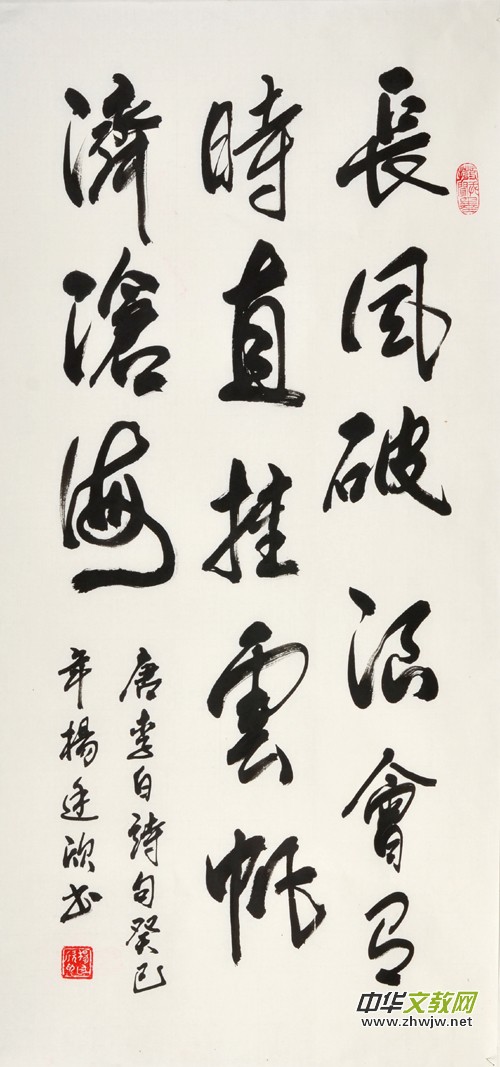 長風破浪會有
時直挂雲帆
濟滄海
唐李白詩句癸巳
年楊欣书
中华文教网
www.zhwjw.net